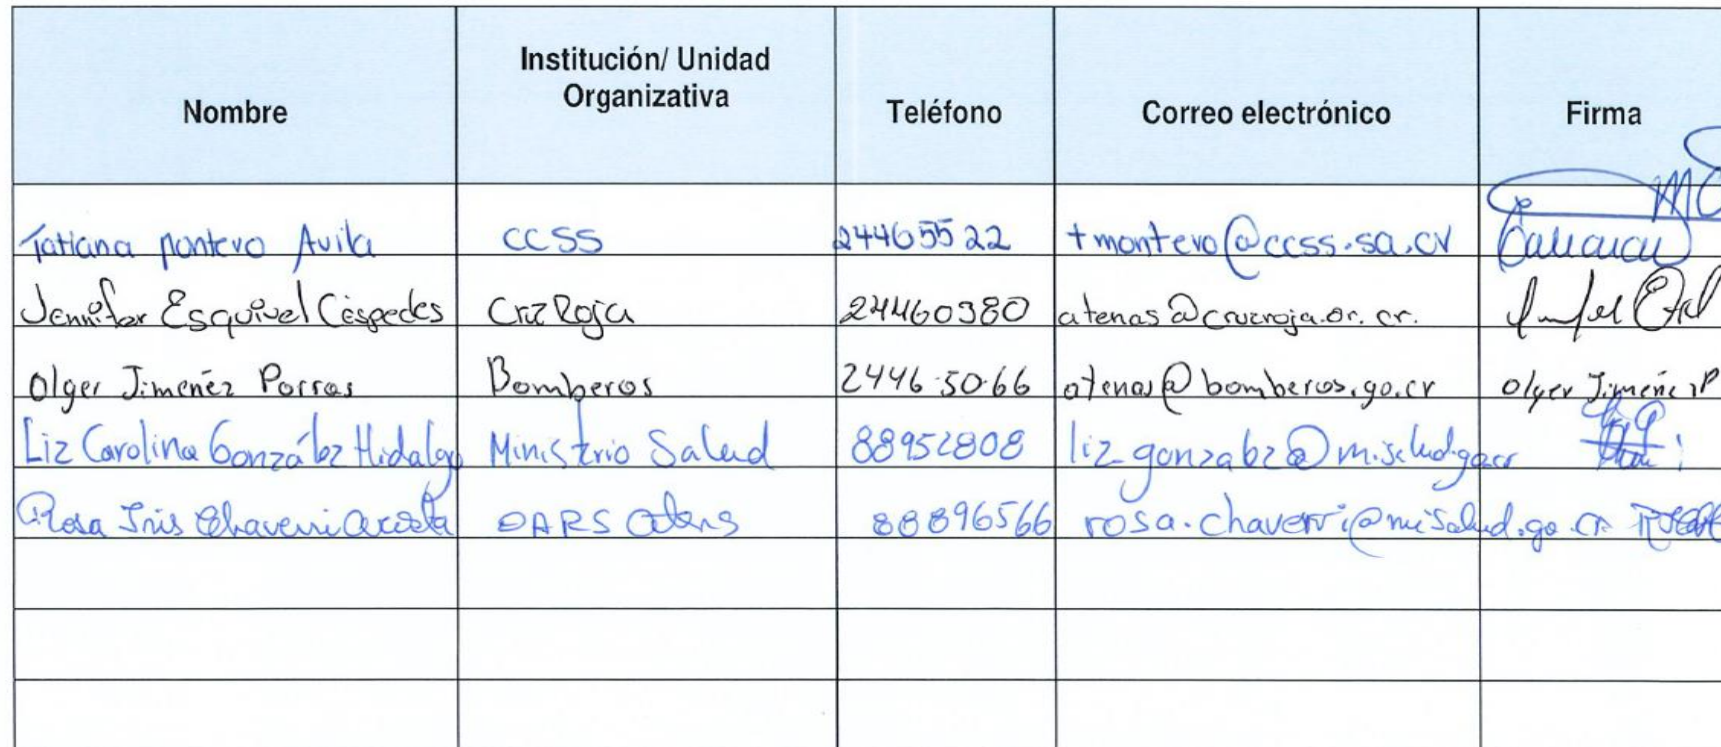 Nombre Institución/ Unidad Organizativa Teléfono Correo electrónico Firma
Tatiana Montero Avila CCSS 24465522 tmontero@ccss.sa.cr
Jennifer Esquivel Céspedes Cruz Roja 24460380 atenas@cruzroja.or.cr.
Olger Jimenéz Porras Bomberos 2446-50-66 atenas@bomberos.go.cr Olger Jimenéz P
Liz Carolina González Hidalgo Ministerio Salud 88952808 liz.gonzalez@misalud.go.cr
Rosa Iris Chaverri Acosta DARS Atenas 88896566 rosa.chaverri@misalud.go.cr